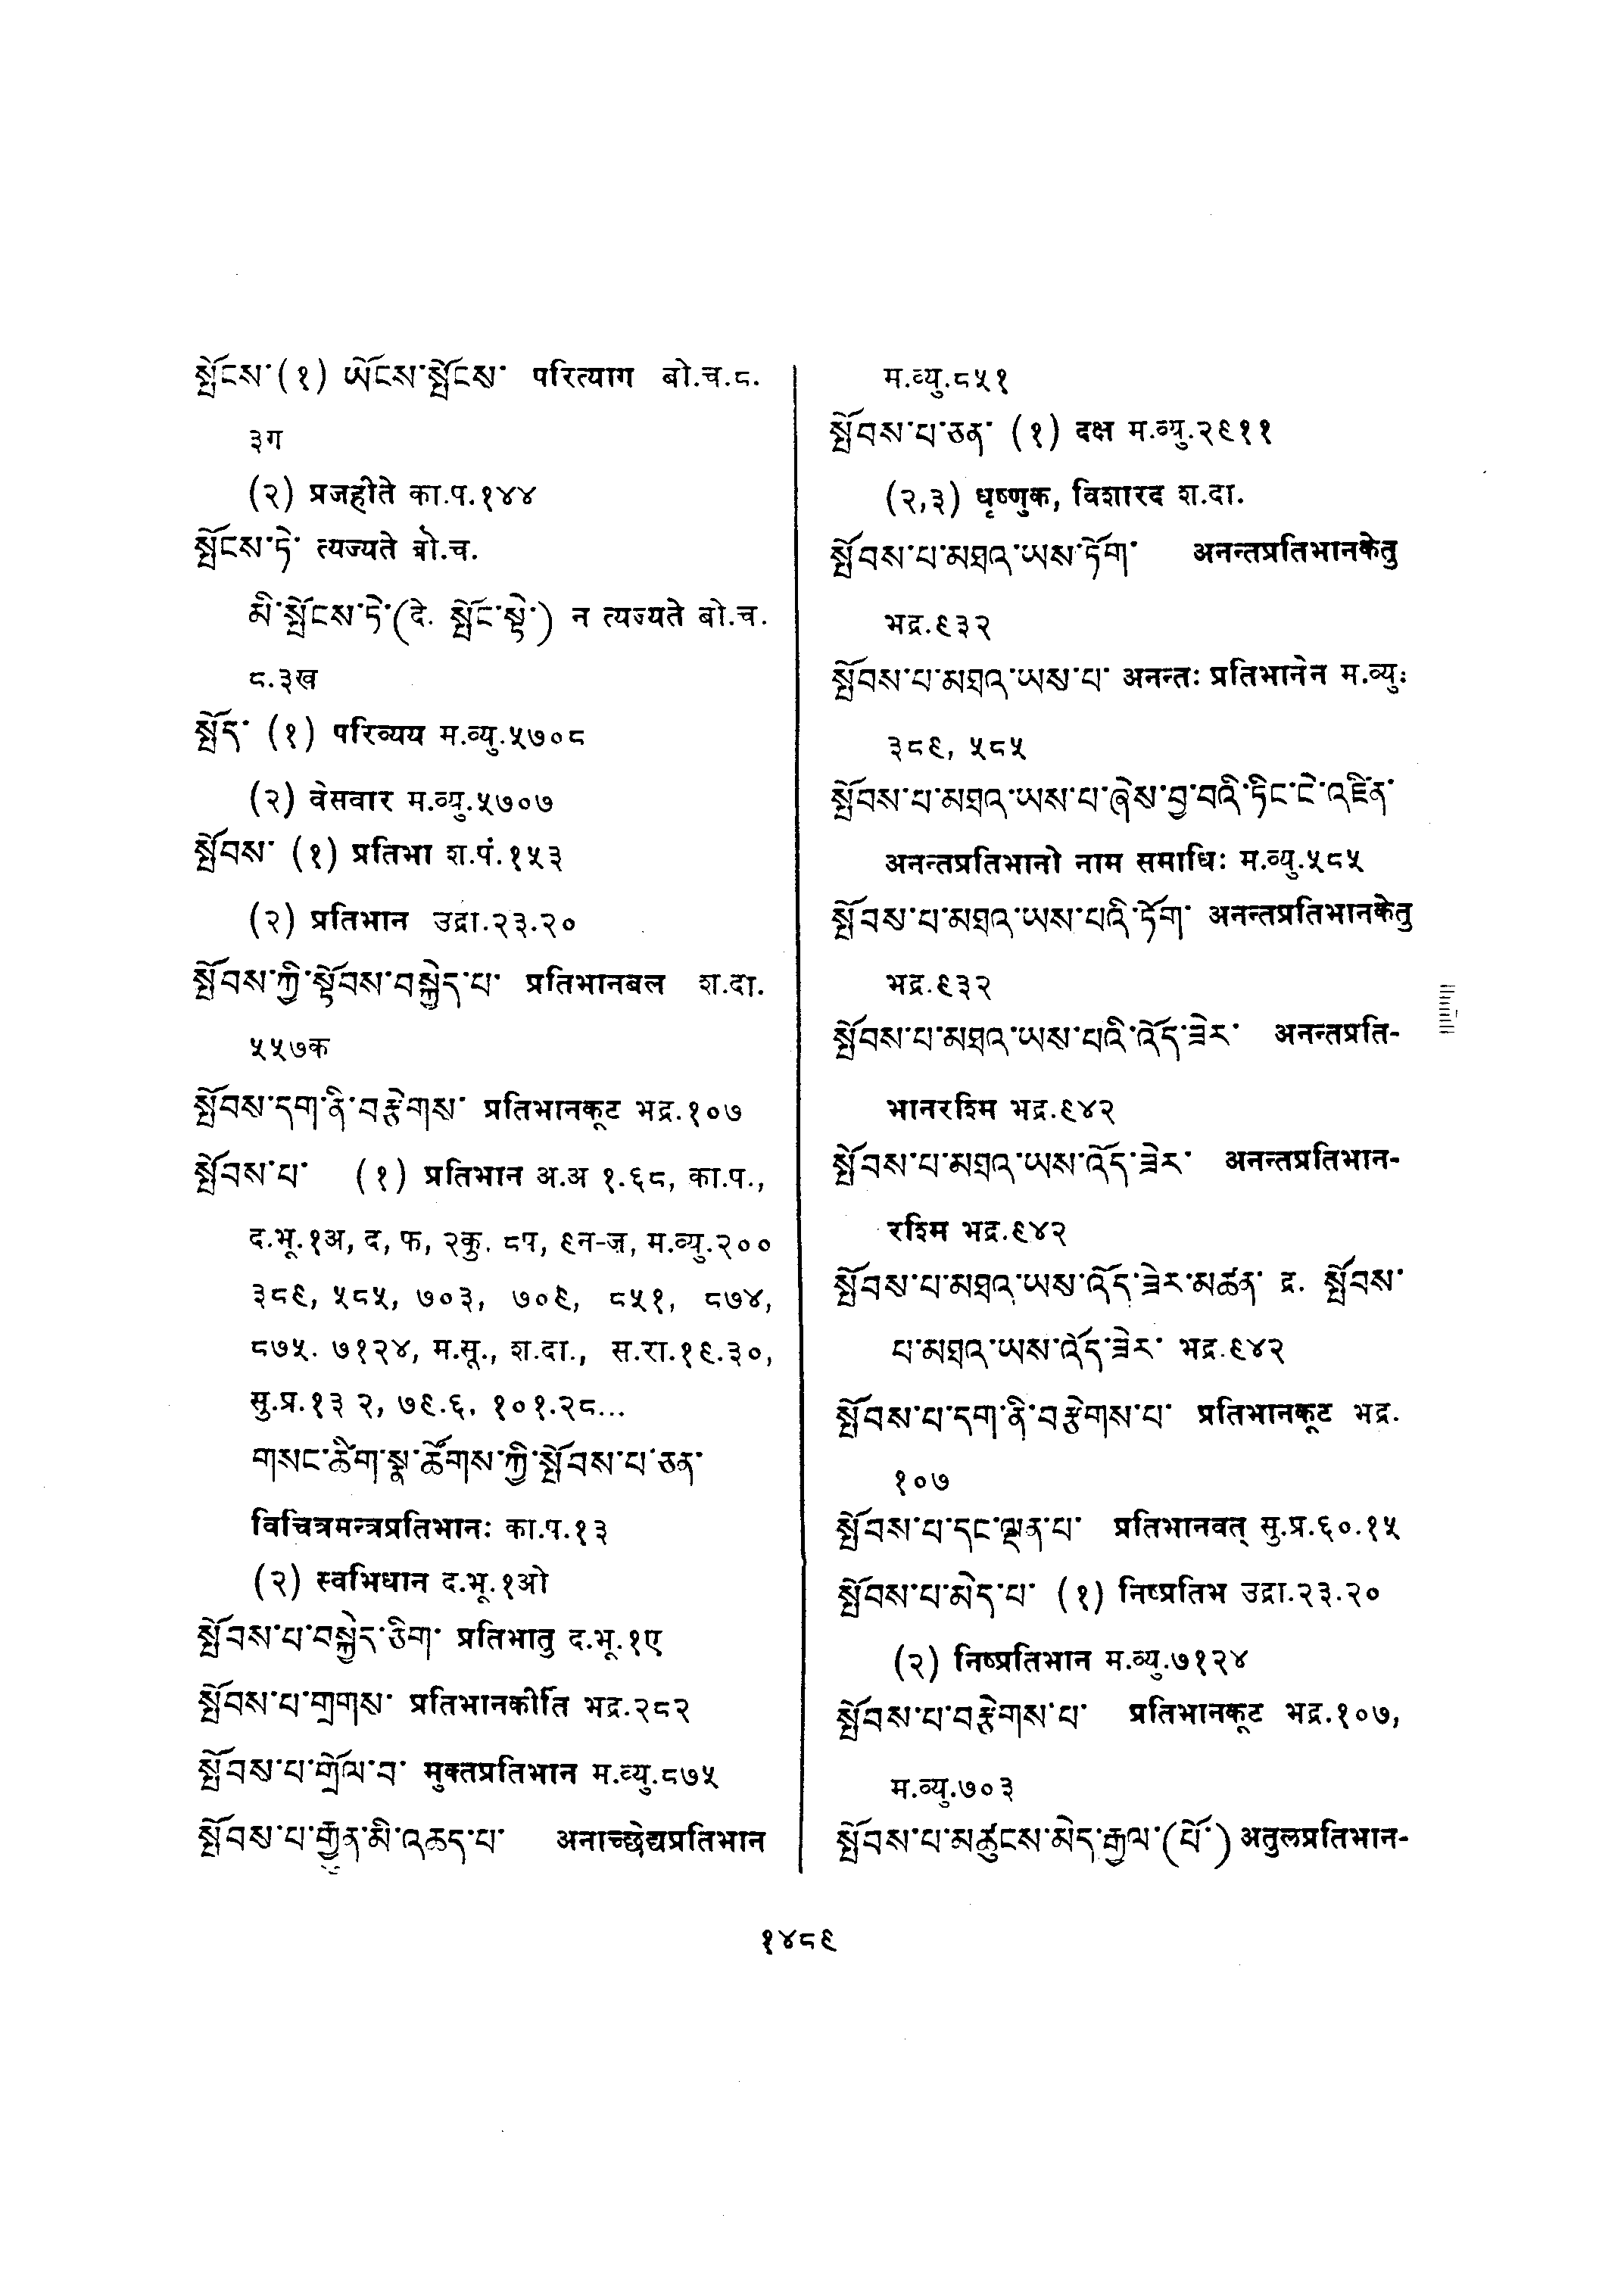 སྤོངས་(१) ཡོངས་སྤོངས་ परित्याग बो.च.८.
३ग
(२) प्रजहीते का.प.१४४
སྤོངས་ཏེ་ त्यज्यते बो.च.
མི་སྤོངས་ཏེ་(दे. སྤོང་སྟེ་) न त्यज्यते बो.च.
८.३ख
སྤོད་ (१) परिव्यय म.व्यु.५७०८
(२) वेसवार म.व्यु.५७०७
སྤོབས་ (१) प्रतिभा श.पं.१५३
(२) प्रतिभान उद्रा.२३.२०
སྤོབས་ཀྱི་སྟོབས་བསྐྱེད་པ་ प्रतिभानबल श.दा.
५५७क
སྤོབས་དག་ནི་བརྩེགས་ प्रतिभानकूट भद्र.१०७
སྤོབས་པ་ (१) प्रतिभान अ.अ १.६८, का.प.,
द.भू.१अ, द, फ, २कु. ८प, ९न-ज, म.व्यु.२००
३८९, ५८५, ७०३, ७०९, ८५१, ८७४,
८७५. ७१२४, म.सू., श.दा., स.रा.१९.३०,
सु.प्र.१३ २, ७९.६. १०१.२८...
གསང་ཚིག་སྣ་ཚོགས་ཀྱི་སྤོབས་པ་ཅན་
विचित्रमन्त्रप्रतिभानः का.प.१३
(२) स्वभिधान द.भू.१ओ
སྤོབས་པ་བསྐྱེད་ཅིག་ प्रतिभातु द.भू.१ए
སྤོབས་པ་གྲགས་ प्रतिभानकीर्ति भद्र.२८२
སྤོབས་པ་གྲོལ་བ་ मुक्तप्रतिभान म.व्यु.८७५
སྤོབས་པ་རྒྱུན་མི་འཆད་པ་ अनाच्छेद्यप्रतिभान
म.व्यु.८५१
སྤོབས་པ་ཅན་ (१) दक्ष म.व्यु.२९११
(२,३) धृष्णुक, विशारद श.दा.
སྤོབས་པ་མཐའ་ཡས་ཏོག་ अनन्तप्रतिभानकेतु
भद्र.९३२
སྤོབས་པ་མཐའ་ཡས་པ་ अनन्तः प्रतिभानेन म.व्युः
३८९, ५८५
སྤོབས་པ་མཐའ་ཡས་པ་ཞེས་བྱ་བའི་ཏིང་ངེ་འཛིན་
अनन्तप्रतिभानो नाम समाधिः म.व्यु.५८५
སྤོབས་པ་མཐའ་ཡས་པའི་ཏོག་ अनन्तप्रतिभानकेतु
भद्र.९३२
སྤོབས་པ་མཐའ་ཡས་པའི་འོད་ཟེར་ अनन्तप्रति-
भानरश्मि भद्र.९४२
སྤོབས་པ་མཐའ་ཡས་འོད་ཟེར་ अनन्तप्रतिभान-
रश्मि भद्र.९४२
སྤོབས་པ་མཐའ་ཡས་འོད་ཟེར་མཚན་ द्र. སྤོབས་
པ་མཐའ་ཡས་འོད་ཟེར་ भद्र.९४२
སྤོབས་པ་དག་ནི་བརྩེགས་པ་ प्रतिभानकूट भद्र.
१०७
སྤོབས་པ་དང་ལྡན་པ་ प्रतिभानवत् सु.प्र.६०.१५
སྤོབས་པ་མེད་པ་ (१) निष्प्रतिभ उद्रा.२३.२०
(२) निष्प्रतिभान म.व्यु.७१२४
སྤོབས་པ་བརྩེགས་པ་ प्रतिभानकूट भद्र.१०७,
म.व्यु.७०३
སྤོབས་པ་མཚུངས་མེད་རྒྱལ་(པོ་) अतुलप्रतिभान-
१४८९